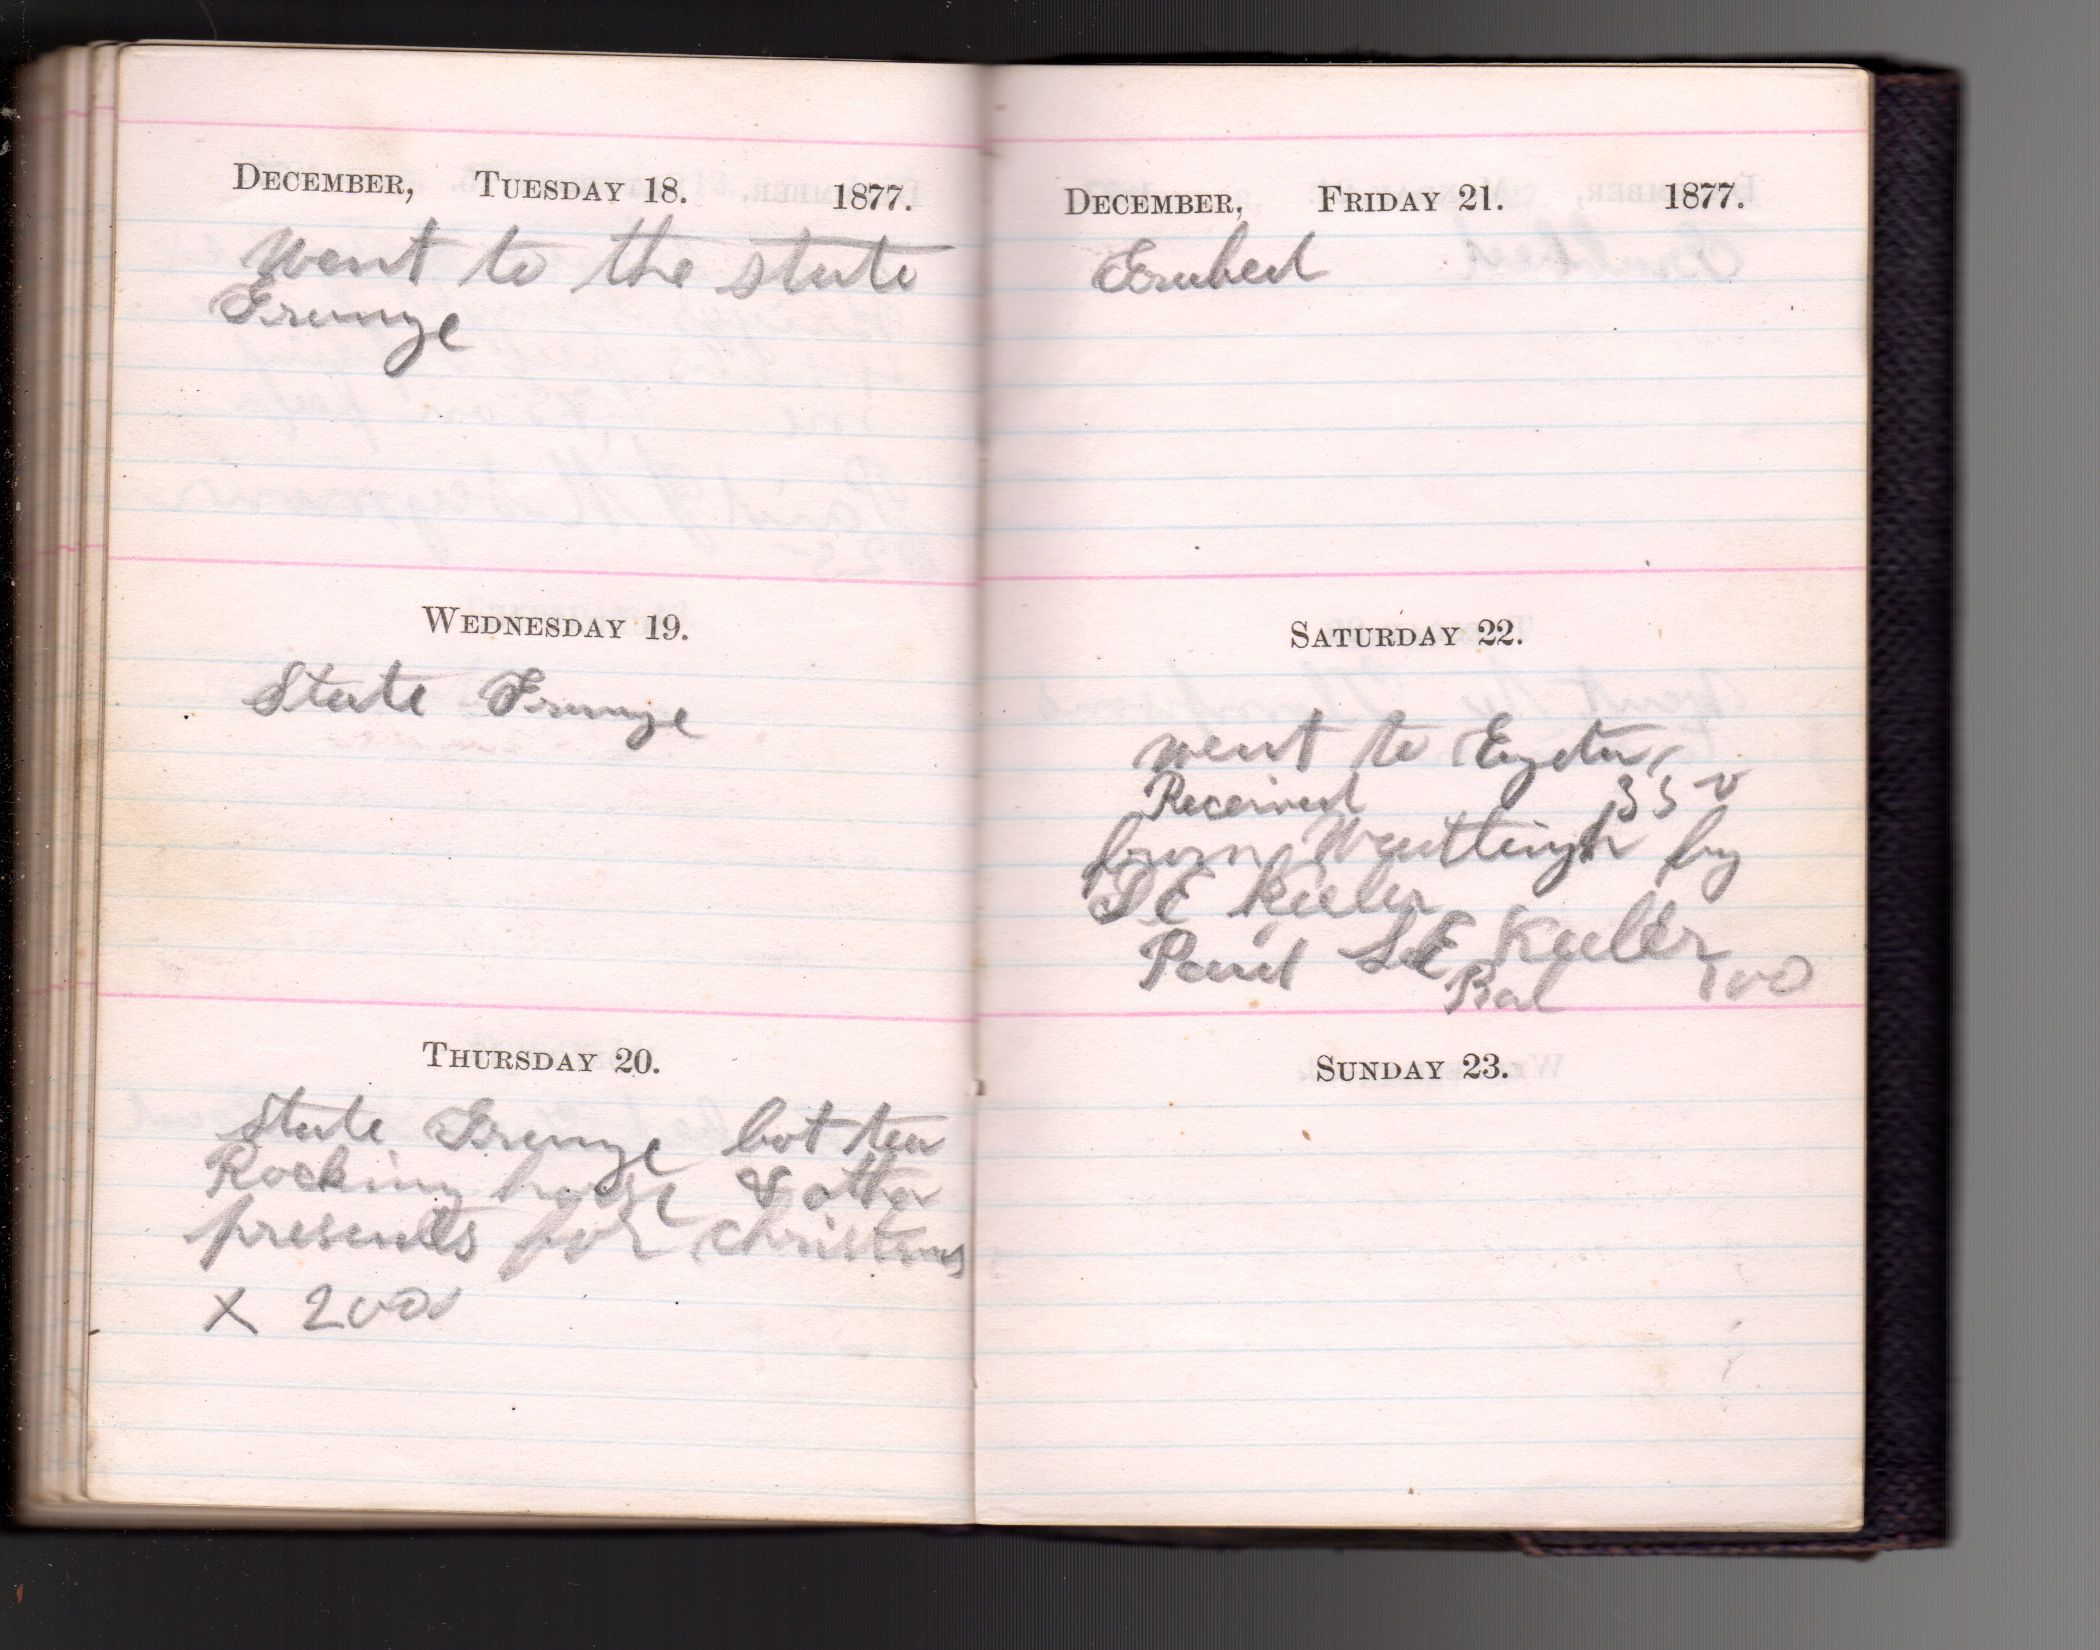 DECEMBER, TUESDAY 18. 1877.
Went to the state
Grange
WEDNESDAY 19.
State Grange
THURSDAY 20.
State Grange bot tea
Rocking horse & other
presents for christmas
X 200
DECEMBER, FRIDAY 21. 1877.
SATURDAY 22.
went to
Received 350
from by
D E Keeler
Paid D E Keeler
Bal 100
SUNDAY 23.